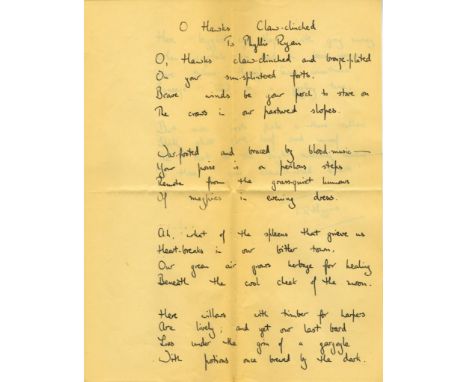 O Hawks Claw-clinched
To Phyllis Ryan
O, Hawks claw-clinched and bronze-plated
On your sun-splintered forts.
Brave winds be your perch to stare on
The crows in our pastured slopes.
War-footed and braced by blood-music—
Your poise is a perilous steps
Remote from the grass-quiet humours
Of magpies in evening dress.
Ah, what of the spleens that grieve us
Heart-breaks in our bitter town.
Our green air grows herbage for healing
Beneath the cool cheek of the moon.
Here willows with timber for harpers
Are lively; and yet our last bard
Lies under the grin of a gargoyle
With potions once brewed by the dark.